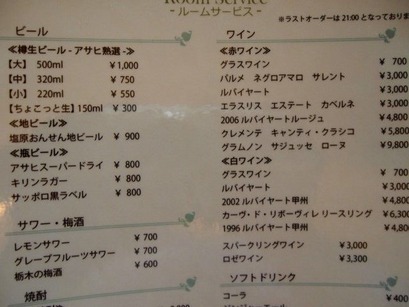 Room Service
- ルームサービス -
※ラストオーダーは 21:00 となっており
ビール
≪樽生ビール - アサヒ熟選 -≫
【大】 500ml ¥1,000
【中】 320ml ¥ 750
【小】 220ml ¥ 550
【ちょこっと生】150ml ¥ 300
≪地ビール≫
塩原おんせん地ビール ¥ 900
≪瓶ビール≫
アサヒスーパードライ ¥ 800
キリンラガー ¥ 800
サッポロ黒ラベル ¥ 800
サワー・梅酒
レモンサワー ¥ 700
グレープフルーツサワー ¥ 700
栃木の梅酒 ¥ 600
焼酎
ワイン
≪赤ワイン≫
グラスワイン ¥ 700
パルメ ネグロアマロ サレント ¥3,000
ルバイヤート ¥3,000
エラスリス エステート カベルネ ¥3,000
2006 ルバイヤートルージュ ¥4,800
クレメンテ キャンティ・クラシコ ¥5,800
グラムノン サジュッセ ローヌ ¥9,800
≪白ワイン≫
グラスワイン ¥ 700
ルバイヤート ¥3,000
2002 ルバイヤート甲州 ¥4,800
カーヴ・ド・リボーヴィレ リースリング ¥6,300
1996 ルバイヤート甲州
スパークリングワイン ¥3,000
ロゼワイン ¥3,300
ソフトドリンク
コーラ
ジンジャーエール